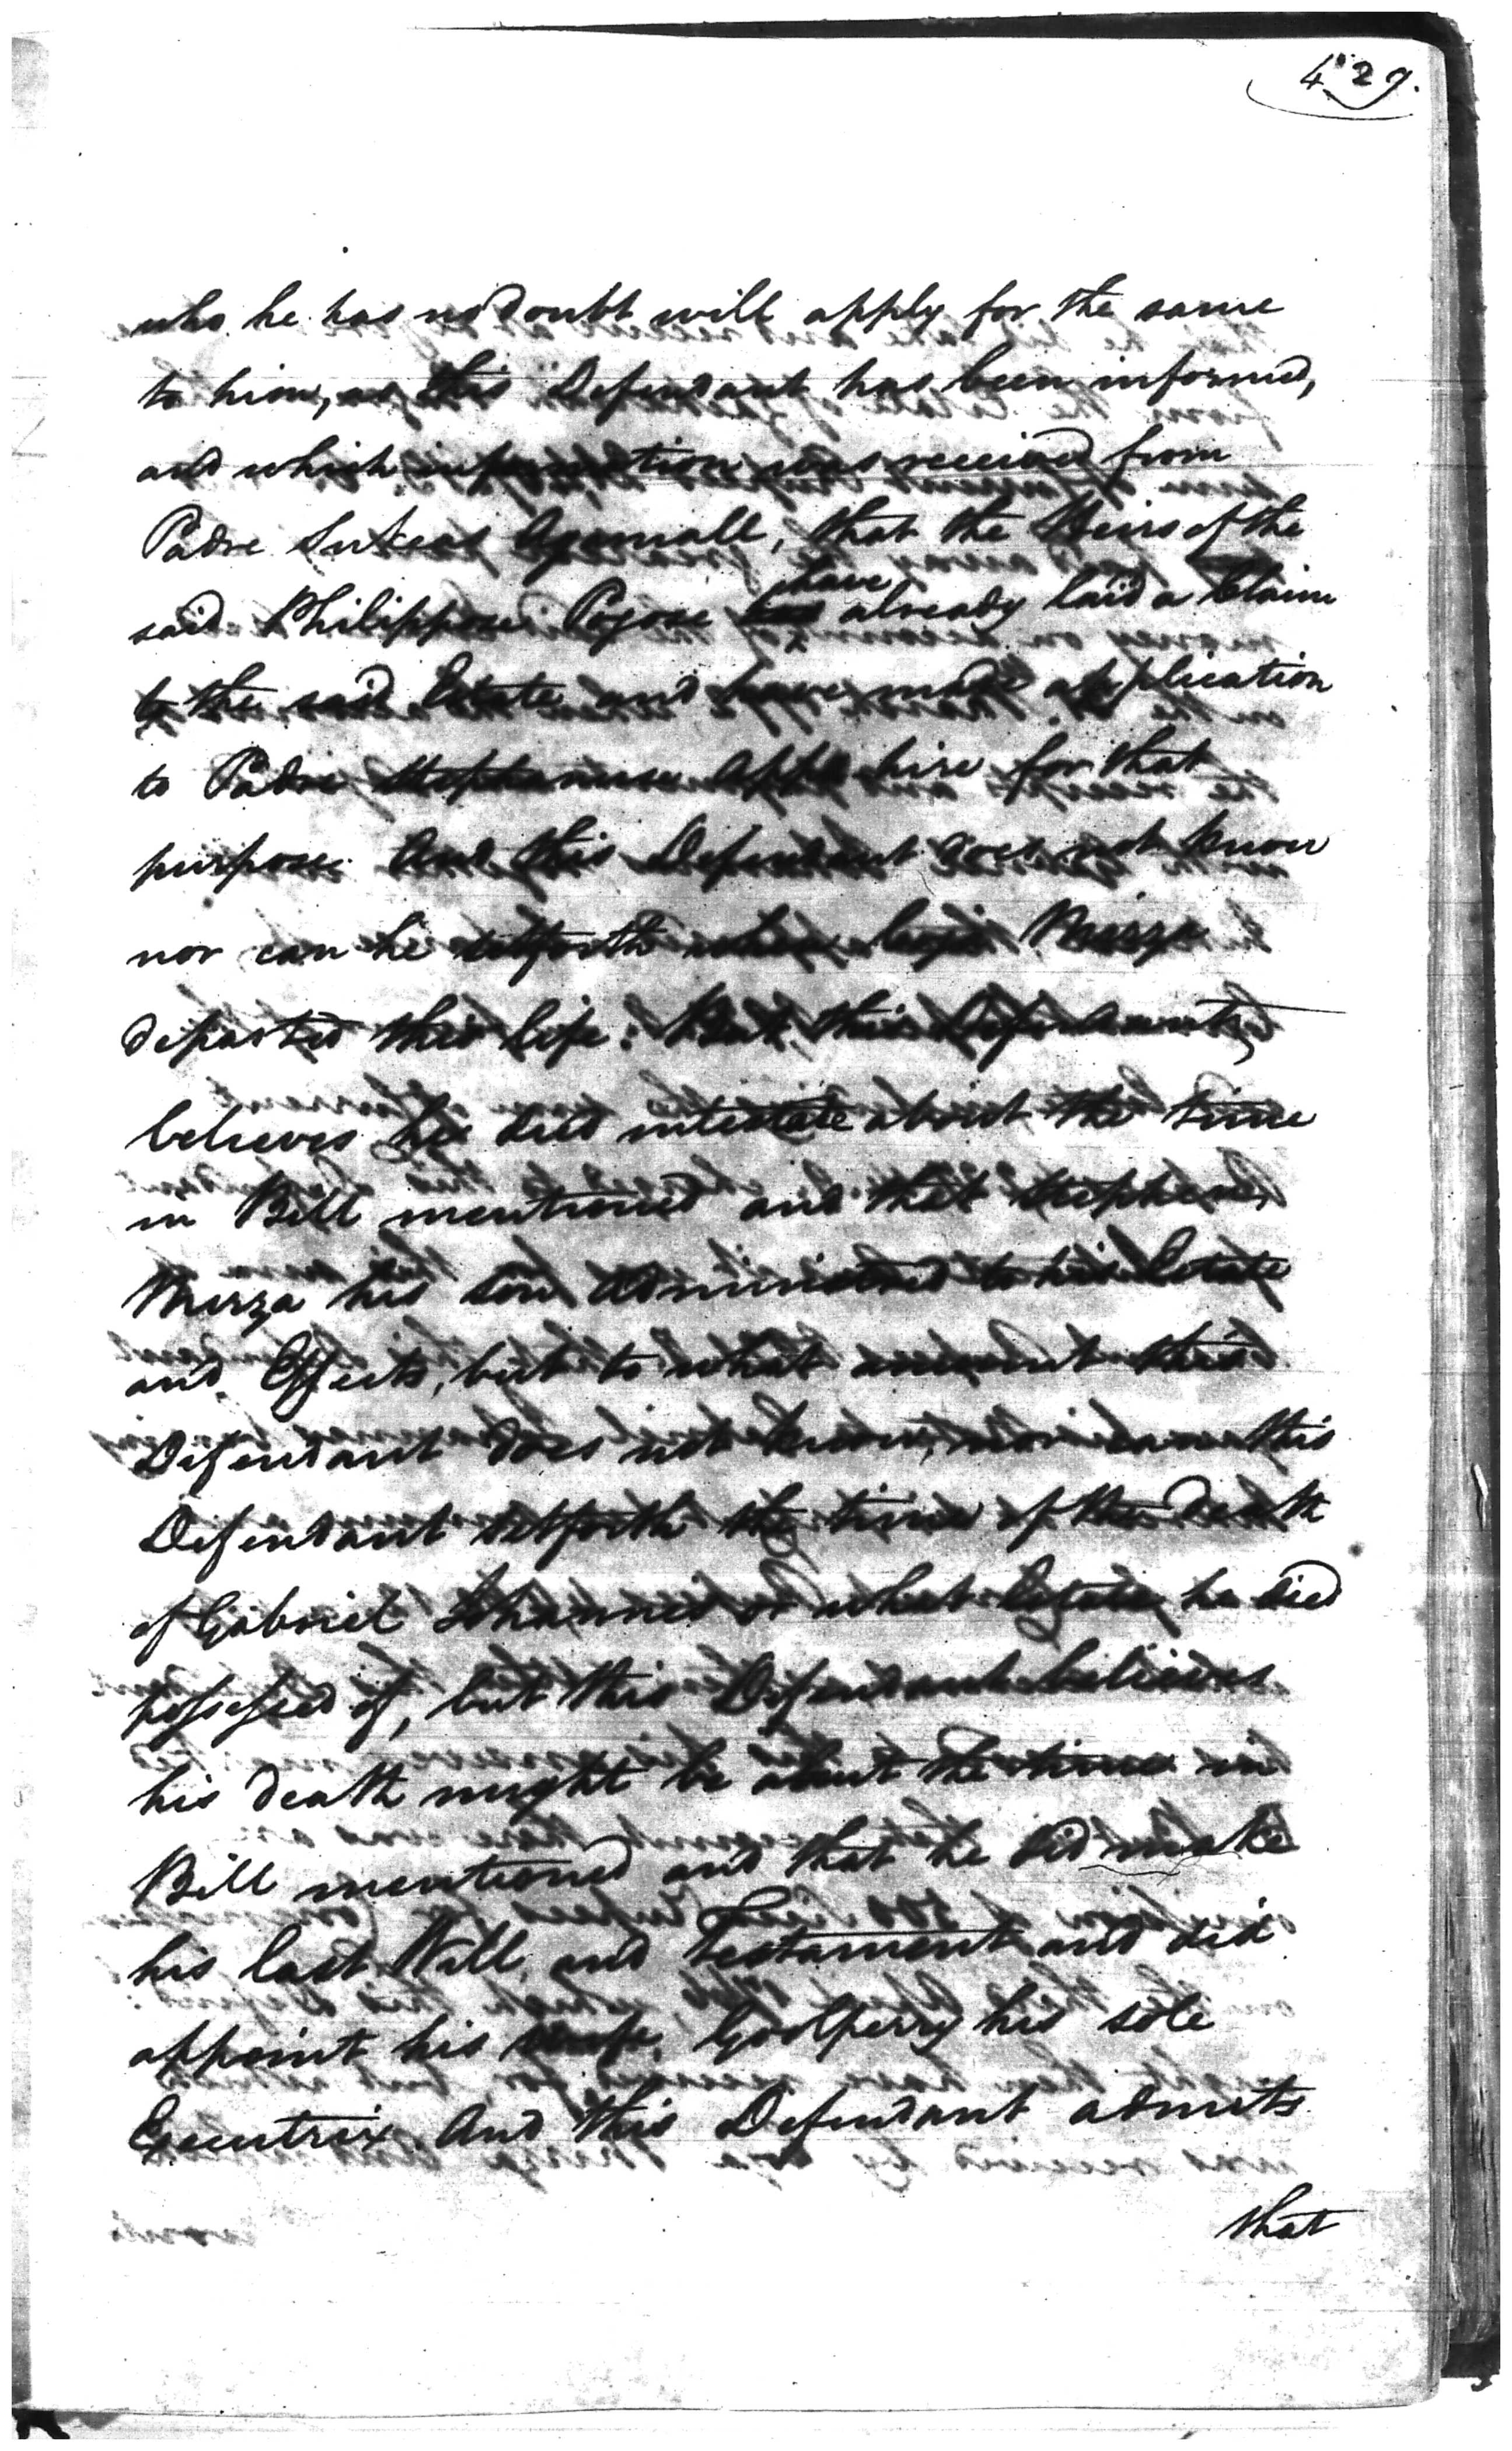 429.
who he has no doubt will apply for the same
to him, as this Defendant has been informed,
and which information was received from
Padre Sukeas Agamall, that the Heirs of the
said Philippose Pogose have already laid a Claim
to the said Estate and have made application
to Padre hire for that
purpose. And this Defendant does not know
nor can he setforth when Mirza
departed this life: But this Defendant
believes he died intestate about the time
in Bill mentioned and that Stephen
Mirza his son administered to his Estate
and Effects, but to what amount this
Defendant does not know, nor can this
Defendant setforth the time of the death
of Gabriel Johannes or what Estate he died
possessed of, but this Defendant believes
his death might be about the time in
Bill mentioned and that he did make
his last Will and Testament and did
appoint his wife, Goolperry his sole
Executrix. And this Defendant admits
that